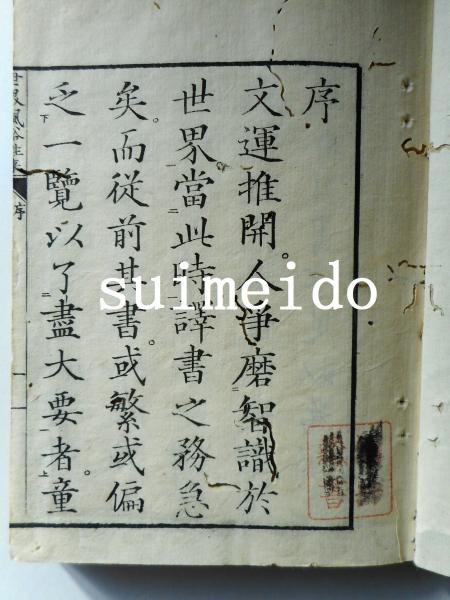 序
文運推開。人爭磨智識於
世界。當此時譯書之務急
矣。而從前其書或繁或偏
乏下一覽以了盡大要者上。童
序
suimeido